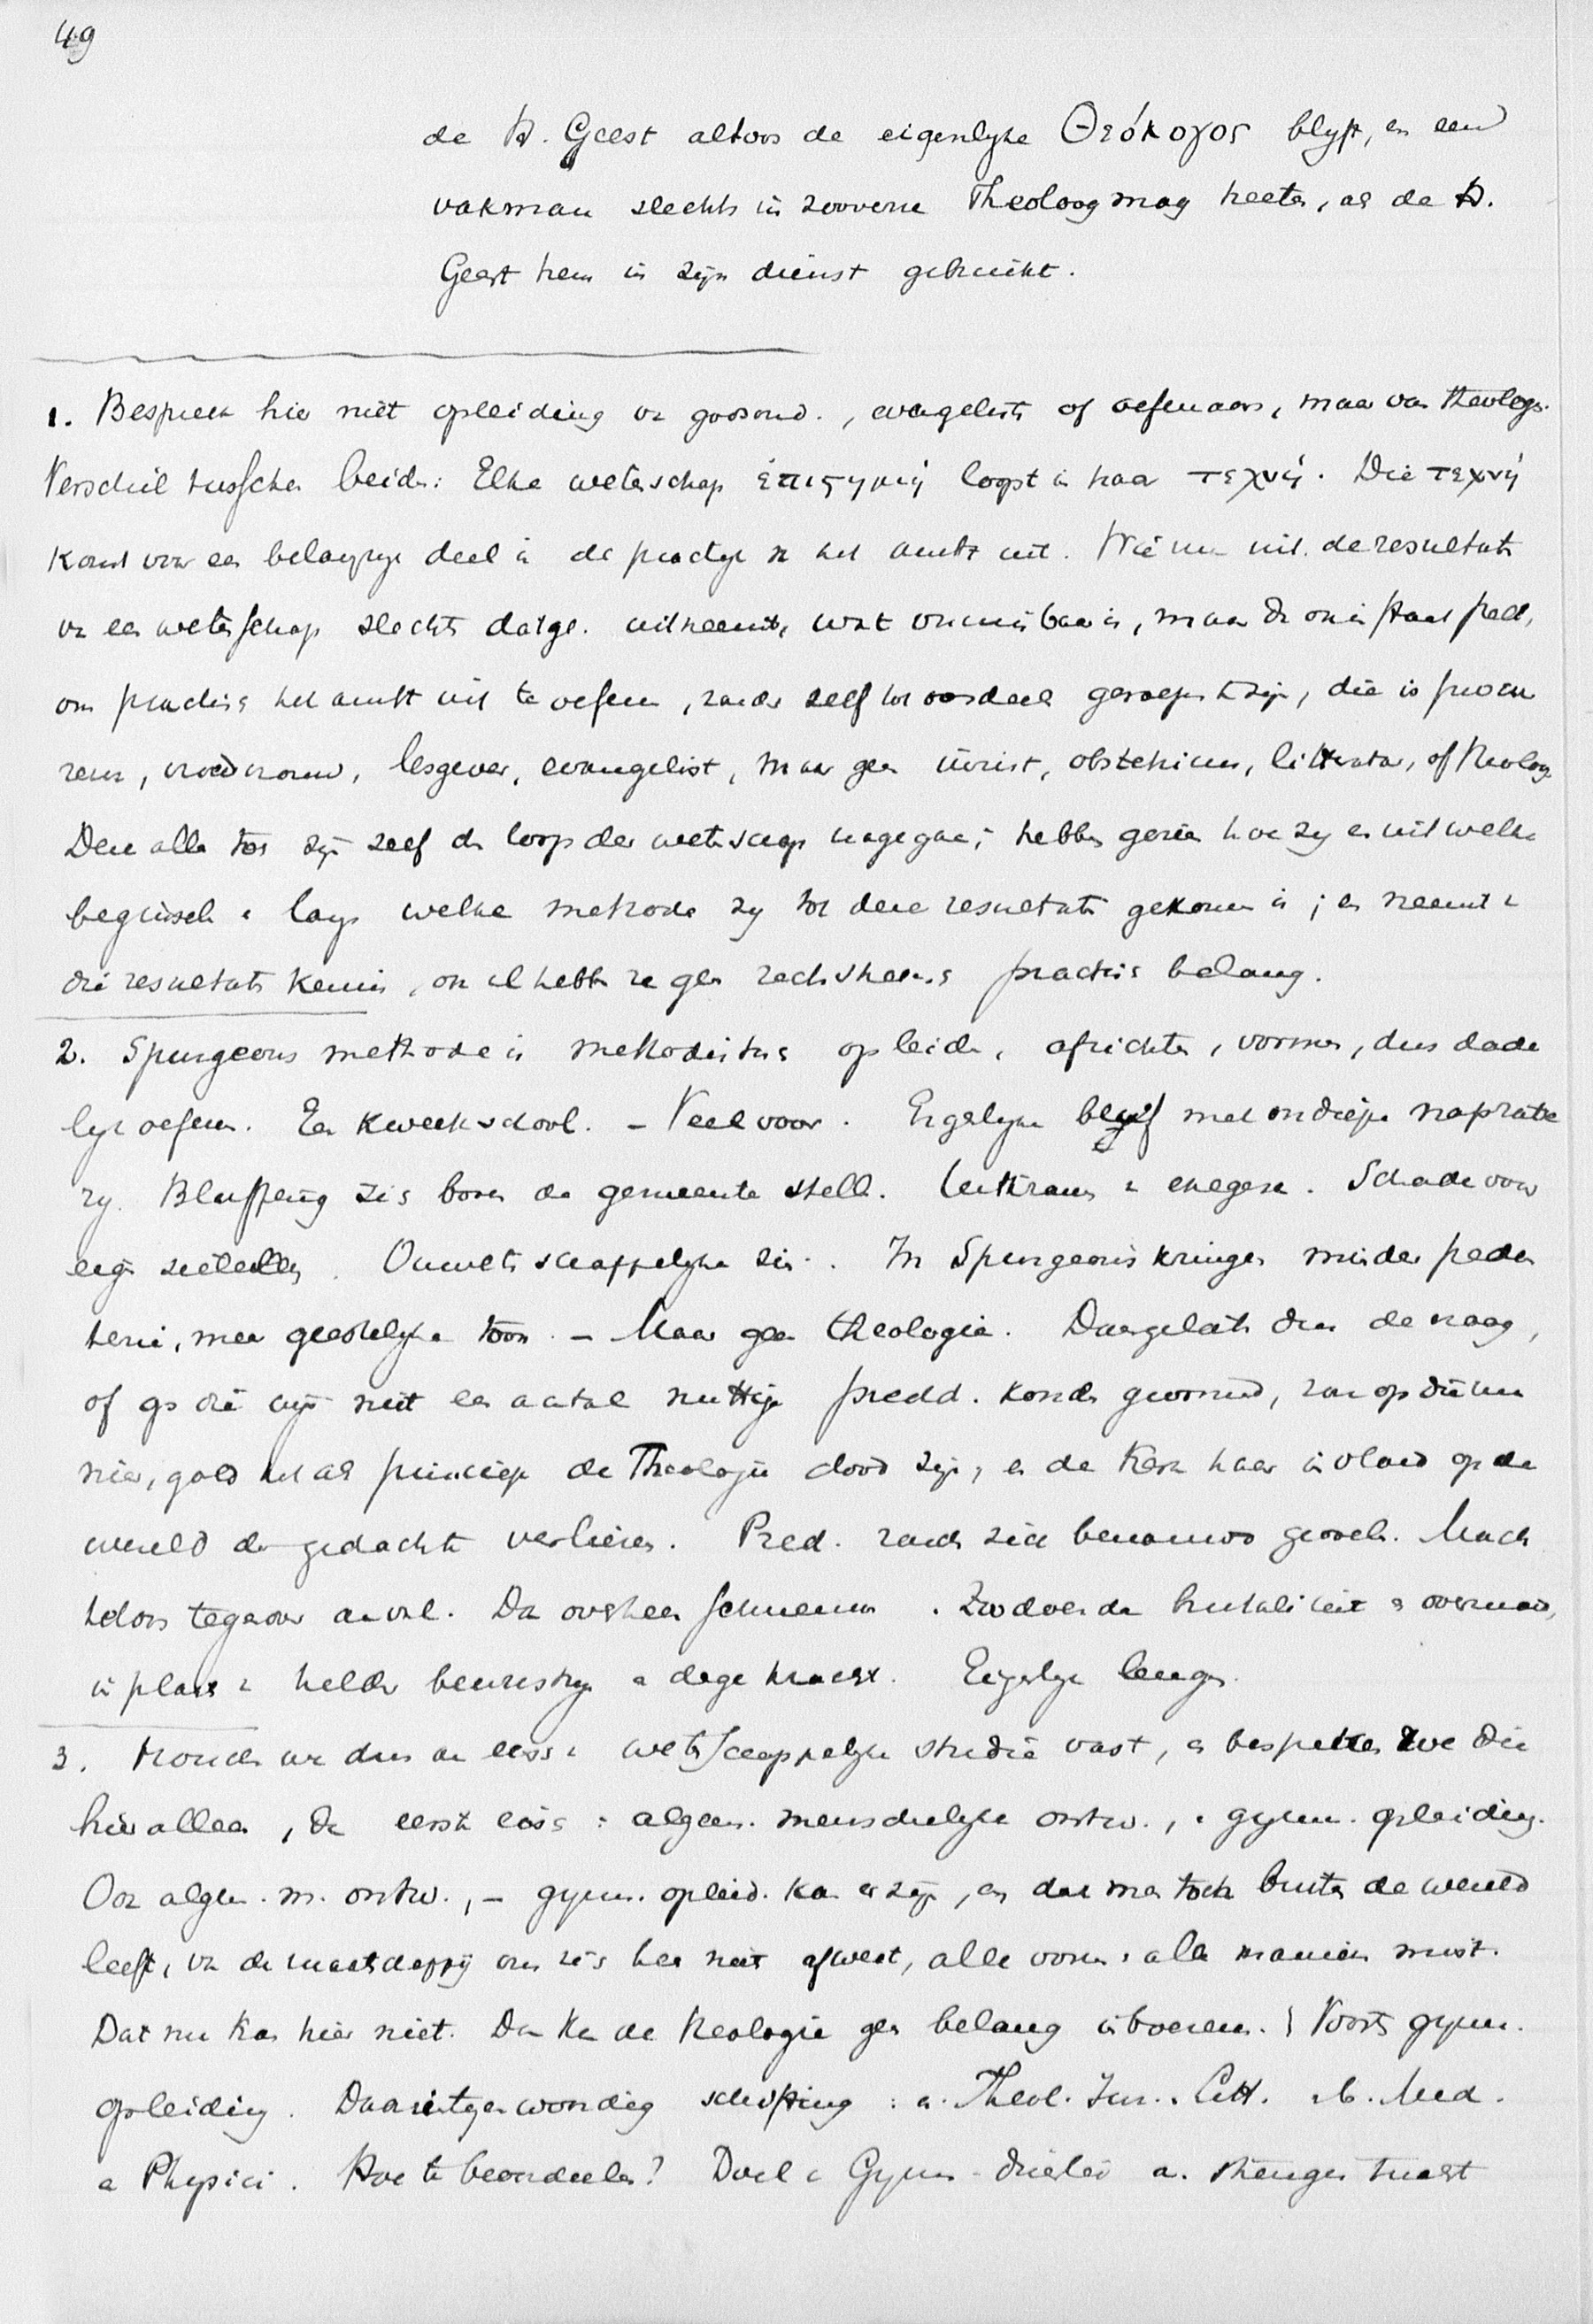 49
de H. Geest altoos de eigenlyke Θεόλογος blyft, en een
vakman slechts in zooverre Theoloog mag heeten, als de H.
Geest hem in zyn dienst gebruikt.
1. Bespreek hier niet opleiding vn godsond., evangelists of oefenaars, maar van theologn.
Verschil tusschen beiden: Elke wetenschap ἐπιστημή loopt in haar τεχνή. Die τεχνή
komt voor een belangryk deel in de practyk n het ambt uit. Wie nu uit de resultaten
vn een wetenschap slechts datge. uitneemt, wat onmisbaar is, maar dn ook in staat stelt,
om practisch het ambt uit te oefenen, zonder zelf tot oordeel geroepen te zyn, die is procu
reur, vroedvrouw, lesgever, evangelist, maar geen jurist, obstetricus, litterator, of theoloog
Deze allen toch zyn zelf den loop der wetenschap nagegaan; hebben gezien hoe zy en uit welke
beginselen langs welke methode zy tot deze resultaten gekomen is; en neemt
die resultaten kennis, ook al hebben ze geen rechtstreeks practisch belang.
2. Spurgeons methode is methodistisch opleiden, africhten, vormen, dus dade
lyk oefenen. Een kweekschool. - Veel voor. Ergelyke met ondiepe naprate
ry. Bluffing zich boven de gemeente stelt. exegese. Schade voor
eigen zieleleven. Onwetenschappelyke zin. In Spurgeons kringen minder pedan
terie, meer geestelyke toon. - Maar geen theologie. Daargelaten dus de vraag,
of op die wyze niet een aantal nuttige predd. konden gevormd, zou op die ma
nier, gold het als principe de Theologie dood zyn, en de Kerk haar invloed op de
wereld der gedachten verliezen. Pred. zouden zich benauwd gevoelen. Mach
teloos tegenover aanval. Dan overheen schreeuwen. Zoodoende brutaliteit & overmoed,
in plaats helder bewustzyn & degelyke kracht. leugen.
3. Houden we dus de eisch wetenschappelyke studie vast, en bespreken we die
hier alleen, dan eerste eisch: algem. menschelyke ontw., gymn. opleiding.
Ook algem. m. ontw., - gymn. opleid. kan er zyn, en dat men toch buiten de wereld
leeft, vn de maatschappy om zich heen niet afweet, alle vorm & alle manieren mist.
Dat nu kan hier niet. Dan kan de theologie geen belang inboezemen. Voorts gymn.
opleiding. Daarin tegenwoordig schifting: a. Theol. Jur. Litt. b. Med.
& Physici. Hoe te beoordeelen? Doel Gymn. drieërlei a. strenge tucht